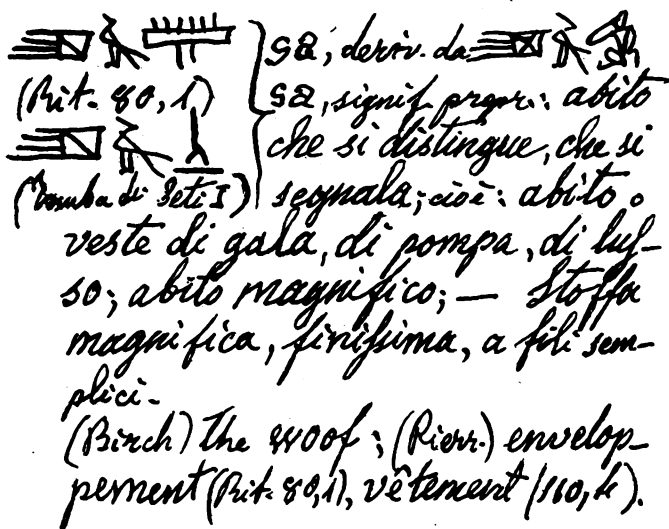 sa, deriv. da
(Rit. 80, 1) sa, signif. propr.: abito
che si distingue, che si
(Tomba di Seti I) segnala; cioè: abito o
veste di gala, di pompa, di lus-
so; abito magnifico; — Stoffa
magnifica, finissima, a fili sem-
plici.
(Birch) the woof; (Pierr.) envelop-
pement (Rit. 80,1), vêtement (160, 4).